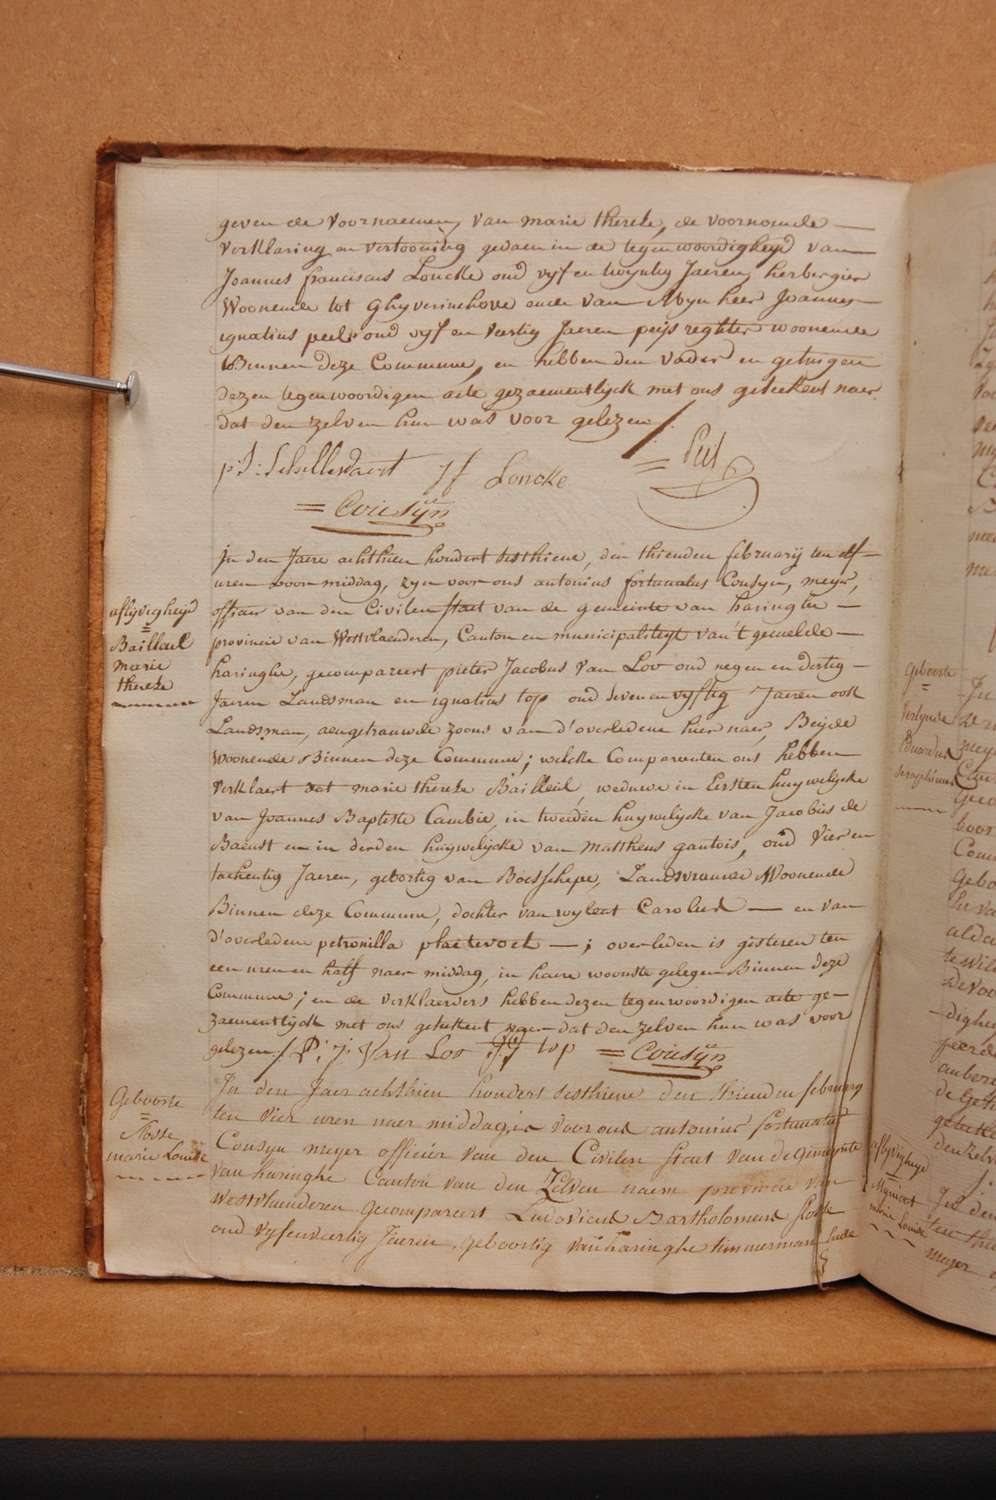 geven de voornaemen, van marie therese, de voornoemde —
verklaring en vertooning gedaen in de tegenwoordigheyd van
Joannes franciscus Loncke oud vyf en twyntig Jaeren, herbergier
Woonende tot Ghyverinchove ende van Mynheer Joannes
ignatius peel oud vyf en veertig Jaeren peys regter woonende
Binnen deze Commune, en hebben den vader en getuigen
dezen tegenwoordigen acte gezaementlyck met ons geteekent naer
dat den zelven hun was voor gelezen /
p: J: Schillewaert J f Loncke = Peel
= Cousÿn
In den Jaere achthien hondert sesthiene, den thienden februarij ten elf
uren voor middag, zyn voor ons antonius fortunatus Cousyn, meyer,
officier van den Civilen staet van de gemeinte van haringhe —
provincie van Westvlaenderen, Canton en municipaliteyt van 't gemelde —
haringhe, gecompareert pieter Jacobus van Loo oud negen en dertig —
Jaeren Landsman en ignatius top oud seven en vyftig Jaeren ook
Landsman, aengetrauwde zoons van d'overledene hier naer, Beyde
Woonende Binnen deze Commune; welcke Comparenten ons hebben
Verklaert dat marie therese Bailleul, weduwe in Eersten huywelycke
van Joannes Baptiste Cambie, in tweeden huywelycke van Jacobus de
Baeust en in derden huywelycke van mattheus gantois, oud vier en
tachentig Jaeren, gebortig van Boesschepe, Landsvrauwe Woonende
Binnen deze Commune, dochter van wylent Carolus — en van
d'overledene petronilla plaetevoet —; overleden is gisteren ten
een uren en half naer middag, in haere woonste gelegen Binnen deze
Commune; en de verklaerders hebben dezen tegenwoordigen acte ge-
zaementlyck met ons geteekent naer dat den zelven hun was voor
gelezen / P: J: Van Loo top = Cousÿn
aflyvigheyd
=
Bailleul
marie
therese
Geboorte
=
Nosse
marie Louise
In den Jaer achthien hondert sesthiene den thienden februarÿ
ten vier uren naer middag, is voor ons antonius fortunatus
Cousyn meyer officier van den Civilen staet van de gemeynte
van haringhe Canton van den Zelven naem provincie van
Westvlaenderen gecompareert Ludovicus Bartholomeus
oud vyfenveertig Jaeren, geboortig van haringhe timmerman
Geboorte
=
aflyvigheyd
=
marie Louise
meyer